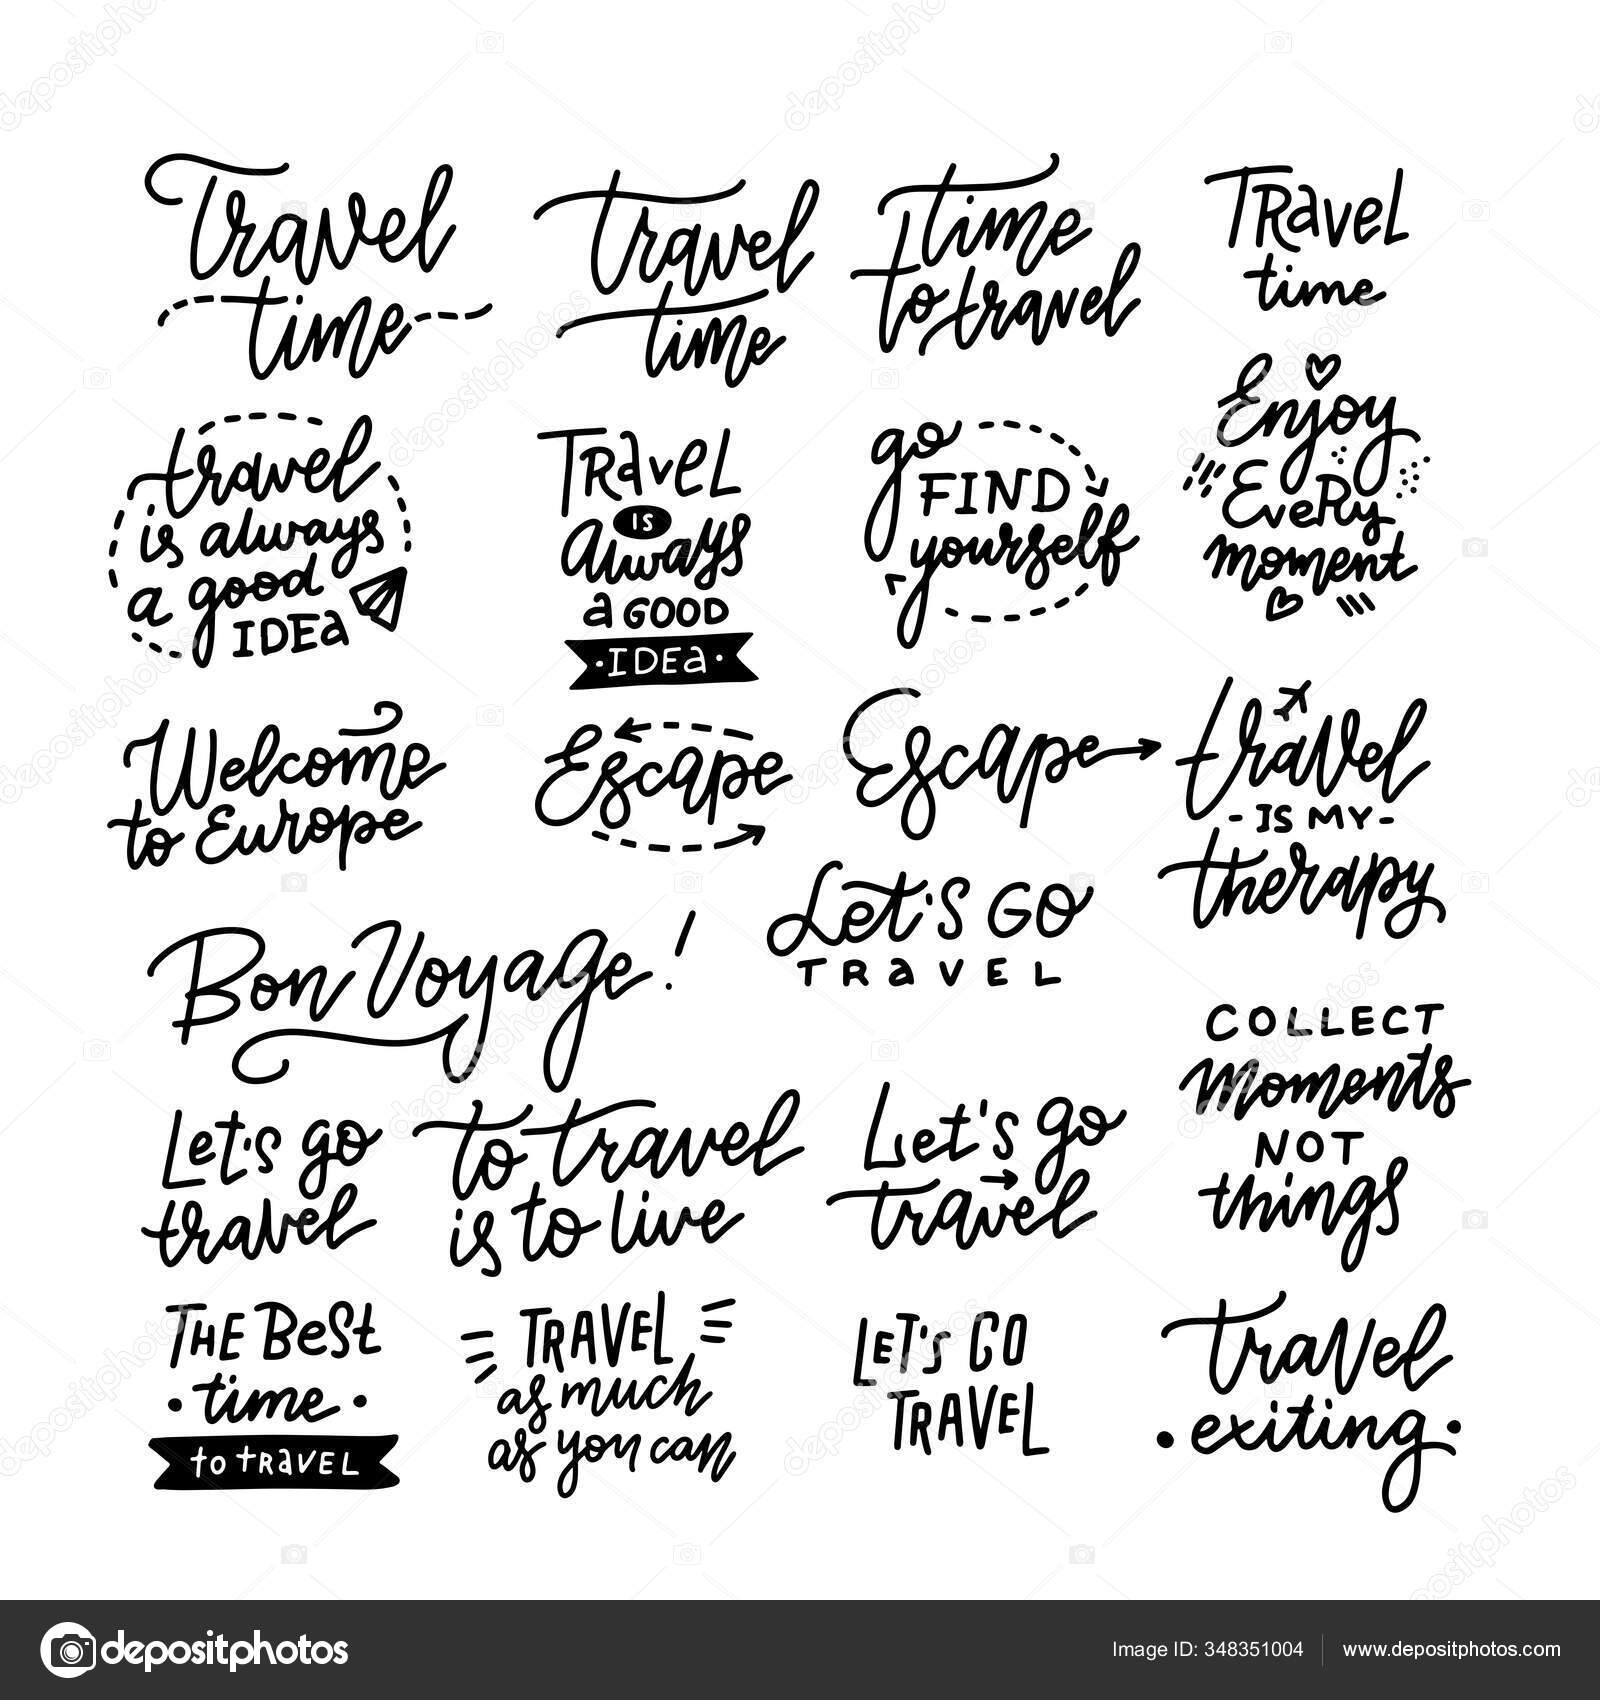 Travel
time
travel
time
time
to travel
TRavel
time
travel
is always
a good
IDEa
TRaveL
IS
always
a GOOD
IDEa
go
FIND
yourself
Enjoy
EveRy
moment
Welcome
to Europe
Escape
Escape
travel
- IS MY -
therapy
Bon Voyage!
Let's GO
TRaVEL
COLLECT
moments
NOT
things
Let's go
travel
to travel
is to live
Let's go
travel
THE BeSt
• time •
to tRaVEL
TRAVEL
as much
as you can
LET'S GO
TRAVEL
travel
• exiting •
depositphotos
Image ID: 348351004
www.depositphotos.com